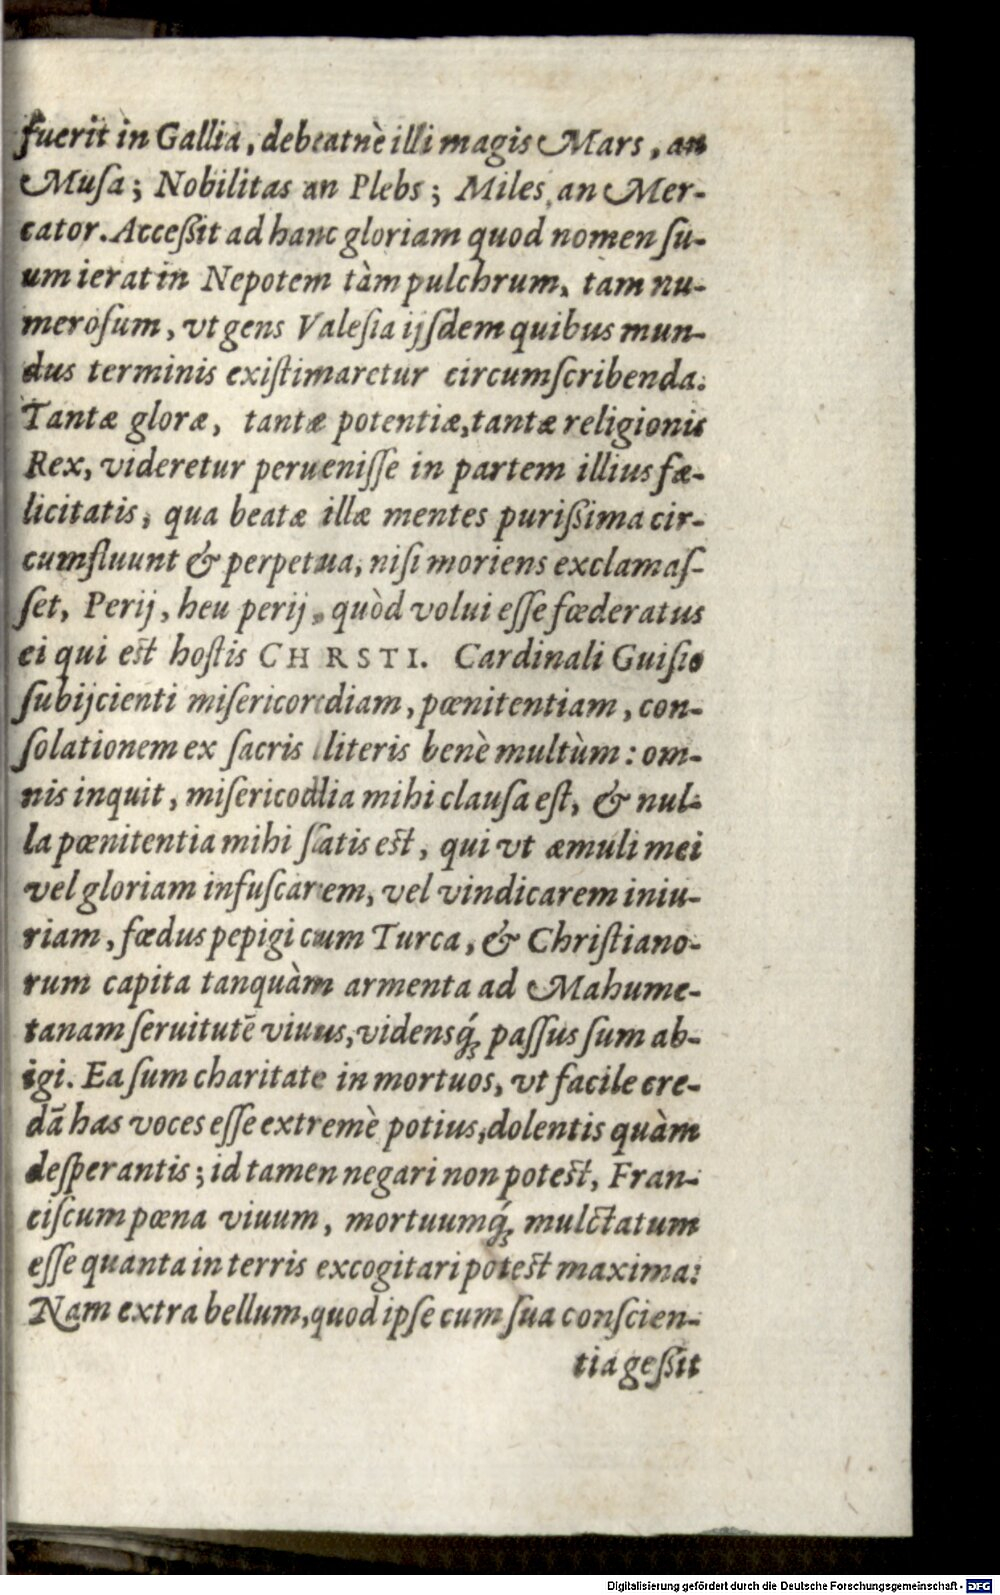 fuerit in Gallia, debeatnè illi magis Mars, an
Muſa; Nobilitas an Plebs; Miles, an Mer-
cator. Acceßit ad hanc gloriam quod nomen ſu-
um ierat in Nepotem tàm pulchrum, tam nu-
meroſum, vt gens Valeſia ijſdem quibus mun-
dus terminis exiſtimaretur circumſcribenda.
Tantæ gloræ, tantæ potentiæ, tantæ religionis
Rex, videretur perueniſſe in partem illius fæ-
licitatis, qua beatæ illæ mentes purißima cir-
cumfluunt & perpetua, niſi moriens exclamaſ-
ſet, Perij, heu perij, quòd volui eſſe fœderatus
ei qui eſt hoſtis CHRSTI. Cardinali Guiſio
ſubijcienti miſericordiam, pœnitentiam, con-
ſolationem ex ſacris literis benè multùm: om-
nis inquit, miſericodia mihi clauſa eſt, & nul-
la pœnitentia mihi ſatis eſt, qui vt æmuli mei
vel gloriam infuſcarem, vel vindicarem iniu-
riam, fœdus pepigi cum Turca, & Chriſtiano-
rum capita tanquàm armenta ad Mahume-
tanam ſeruitutē viuus, vidensq́; paſſus ſum ab-
igi. Ea ſum charitate in mortuos, vt facile cre-
dã has voces eſſe extremè potius, dolentis quàm
deſperantis; id tamen negari non poteſt, Fran-
ciſcum pœna viuum, mortuumq́; mulctatum
eſſe quanta in terris excogitari poteſt maxima:
Nam extra bellum, quod ipſe cum ſua conſcien-
tia geßit
Digitalisierung gefördert durch die Deutsche Forschungsgemeinschaft - DFG